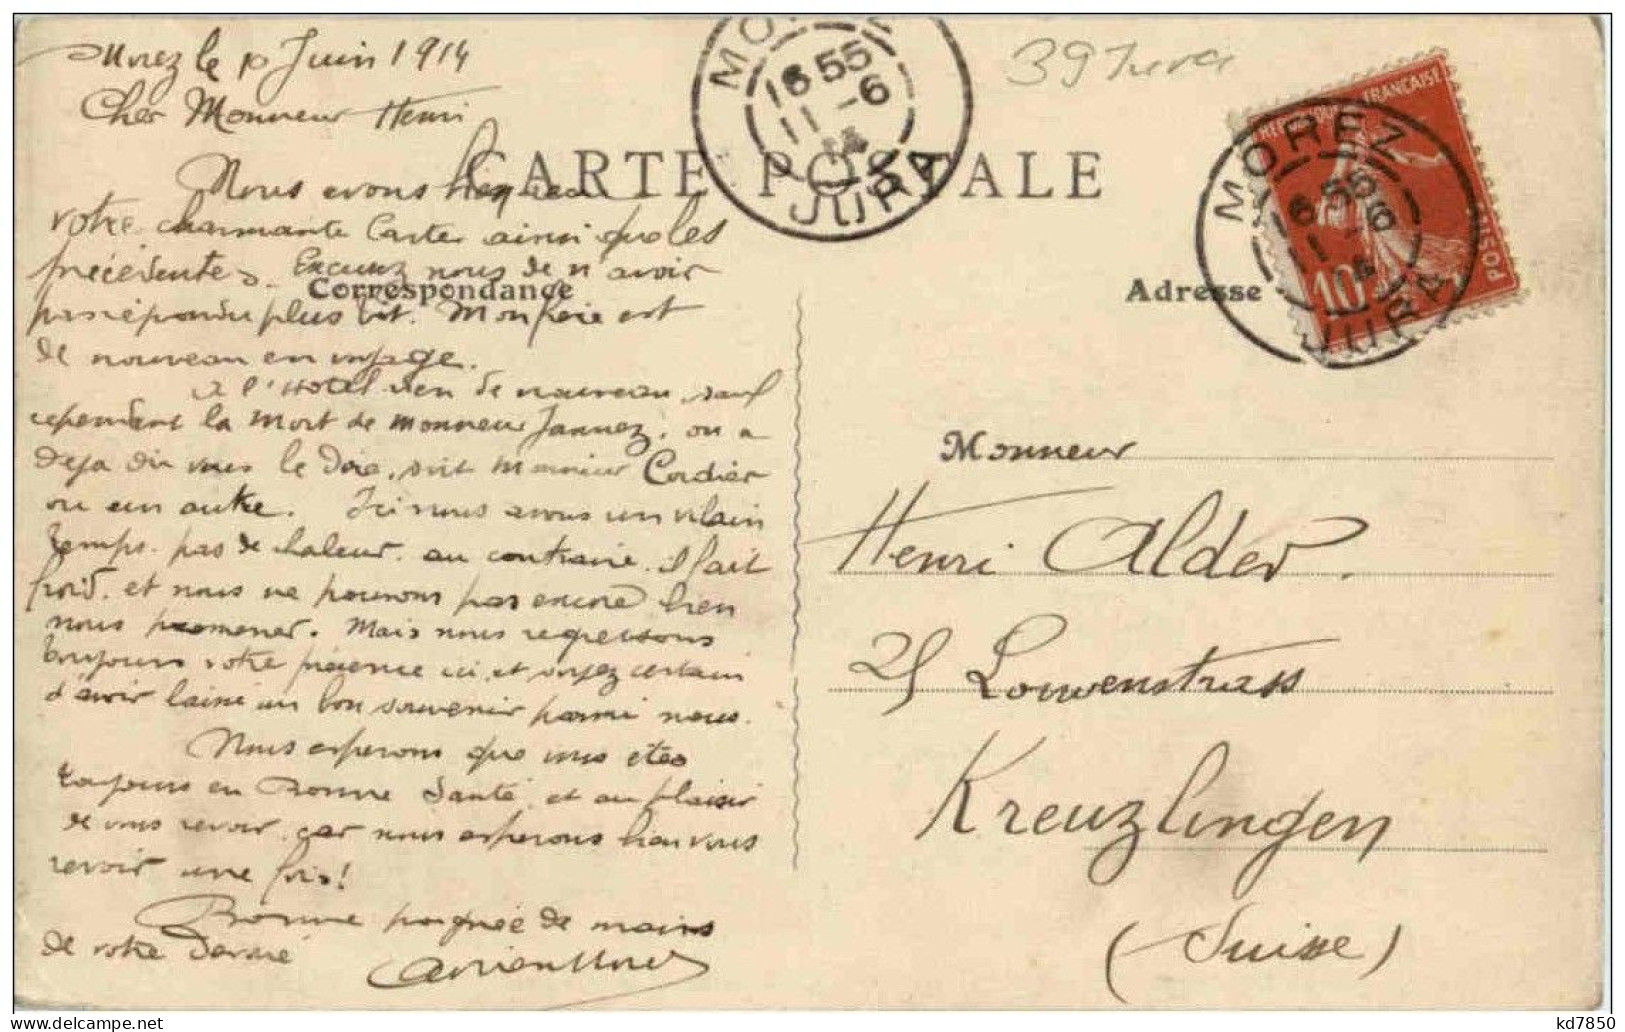 39 Jura
MOREZ
16 55
11 - 6
14
JURA
REPUBLIQUE FRANÇAISE
POSTES
10
MOREZ
16 55
11 - 6
14
JURA
CARTE POSTALE
Correspondance
Adresse
Morez le 10 Juin 1914
Cher Monsieur Henri
Nous avons bien reçu
votre charmante Carte ainsi que les
précédentes. Excusez nous de n'avoir
pas répondu plus tôt. Mon père est
de nouveau en voyage.
A l'Hôtel rien de nouveau, sauf
cependant la Mort de Monsieur Jannez, on a
déjà dû vous le dire, soit Monsieur Cordier
ou un autre. Ici nous avons un vilain
temps. pas de chaleur. au contraire. il fait
froid. et nous ne pouvons pas encore bien
nous promener. Mais nous regrettons
toujours votre présence ici, et soyez certain
d'avoir laissé un bon souvenir parmi nous.
Nous espérons que vous êtes
toujours en Bonne Santé, et au plaisir
de vous revoir, car nous espérons bien vous
revoir une fois!
Bonne poignée de mains
de votre Dévoué
Monsieur
Henri Alder.
25 Louwenstrass
Kreuzlingen
(Suisse)
kd7850